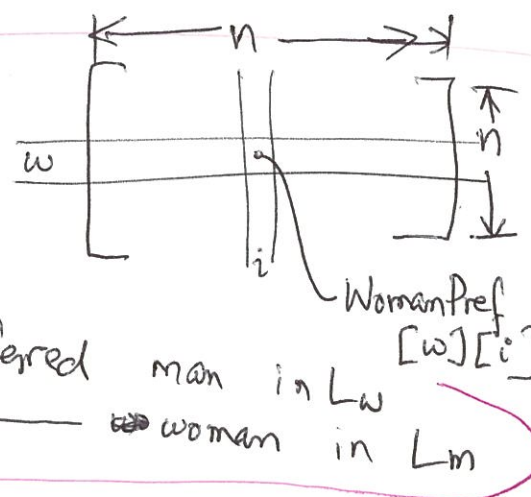 n
w
n
i
WomanPref
[w][i]
man in Lw
woman in Lm